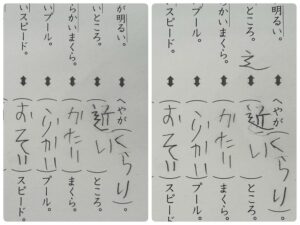 が明るい。 ⬍ へやが(くらい)。
いところ。 ⬍ (近い)ところ。
らかいまくら。 ⬍ (かたい)まくら。
いプール。 ⬍ (ふかい)プール。
いスピード。 ⬍ (おそい)スピード。
明るい。 ⬍ へやが(くらい)。
ところ。 ⬍ (近い)ところ。
いまくら。 ⬍ (かたい)まくら。
プール。 ⬍ (ふかい)プール。
スピード。 ⬍ (おそい)スピード。